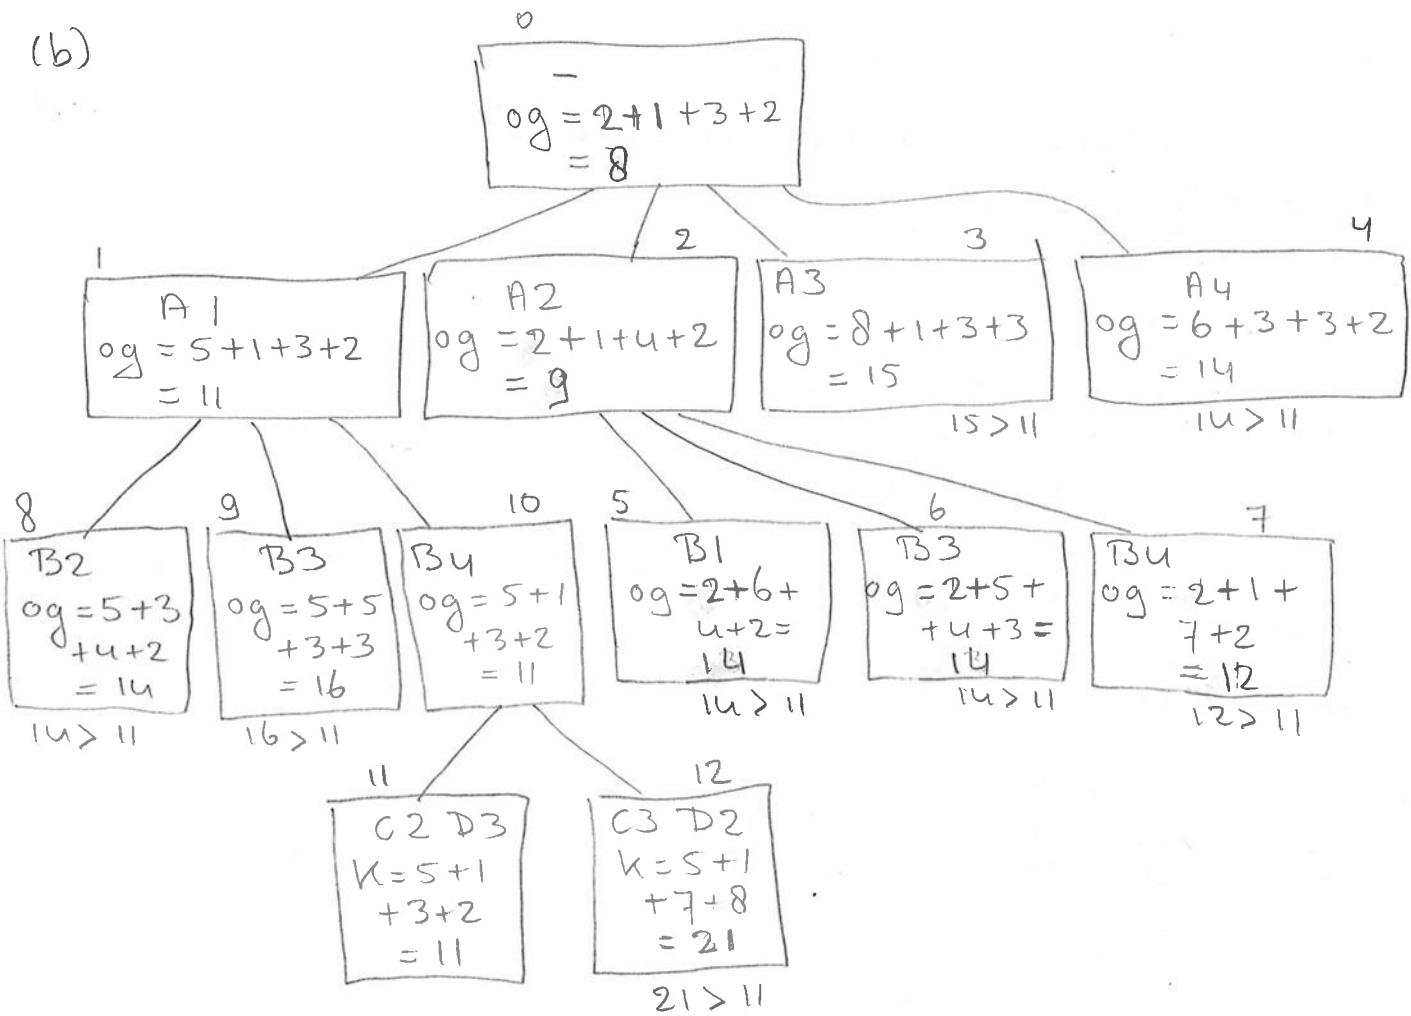 (b)
0
–
og = 2+1+3+2
= 8
1
A1
og = 5+1+3+2
= 11
2
A2
og = 2+1+4+2
= 9
3
A3
og = 8+1+3+3
= 15
15 > 11
4
A4
og = 6+3+3+2
= 14
14 > 11
8
B2
og = 5+3
+4+2
= 14
14 > 11
9
B3
og = 5+5
+3+3
= 16
16 > 11
10
B4
og = 5+1
+3+2
= 11
5
B1
og = 2+6+
4+2=
14
14 > 11
6
B3
og = 2+5+
+4+3=
14
14 > 11
7
B4
og = 2+1+
7+2
= 12
12 > 11
11
C2 D3
K = 5+1
+3+2
= 11
12
C3 D2
K = 5+1
+7+8
= 21
21 > 11